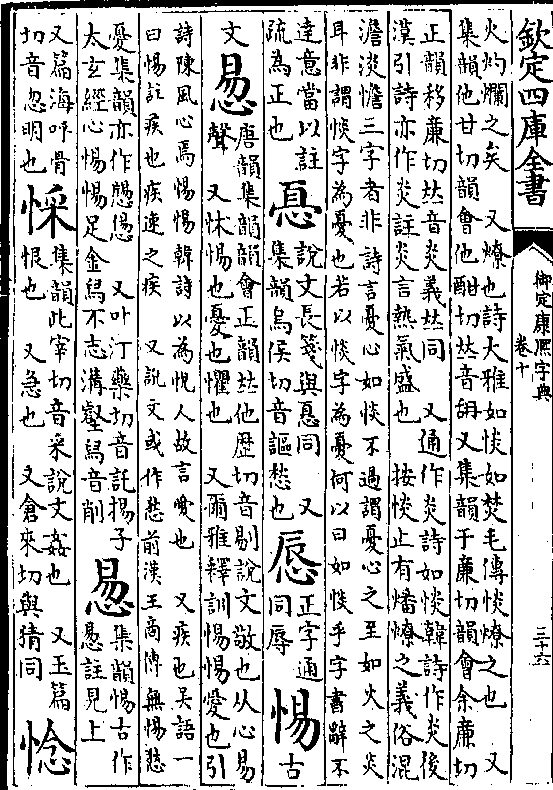 欽定四庫全書
御定康熙字典
卷十
三十六
火灼爛之矣 又燎也詩大雅如惔如焚毛傳惔燎之也 又
集韻他甘切韻會他酣切𠀤音胡又集韻于廉切韻會余廉切
正韻移廉切𠀤音炎義𠀤同 又通作炎詩如惔韓詩作炎後
漢引詩亦作炎註炎言熱氣盛也 按惔止有燔燎之義俗混
澹淡憺三字者非詩言憂心如惔不過謂憂心之至如火之炎
耳非謂惔字為憂也若以惔字為憂何以曰如惔乎字書辭不
達意當以註
疏為正也
㤅
說文長箋與惪同 又
集韻烏侯切音謳愁也
㥛
正字通
同辱
惕
古
文
悐
唐韻集韻韻會正韻𠀤他歷切音剔說文敬也从心易
聲 又怵惕也憂也懼也 又爾雅釋訓惕惕愛也引
詩陳風心焉惕惕韓詩以為悅人故言愛也 又疾也吳語一
曰惕註疾也疾速之疾 又說文或作悐前漢王商傳無惕悐
憂集韻亦作𢠆愓 又叶汀藥切音託揚子
太玄經心惕惕足金舄不志溝壑舄音削
惖
集韻惕古作
惖註見上
又篇海呼骨
切音忽明也
㥒
集韻此宰切音采說文姦也 又玉篇
恨也 又急也 又倉來切與猜同
惗